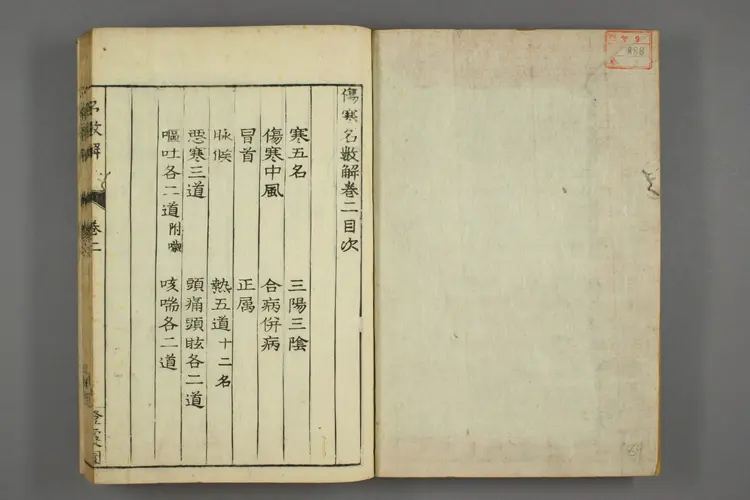 傷寒名數解卷二目次
寒五名 三陽三陰
傷寒中風 合病併病
冒首 正属
脉候 熱五道十二名
惡寒三道 頭痛頭眩各二道
嘔吐各二道附噦 咳喘各二道
名數解 卷二